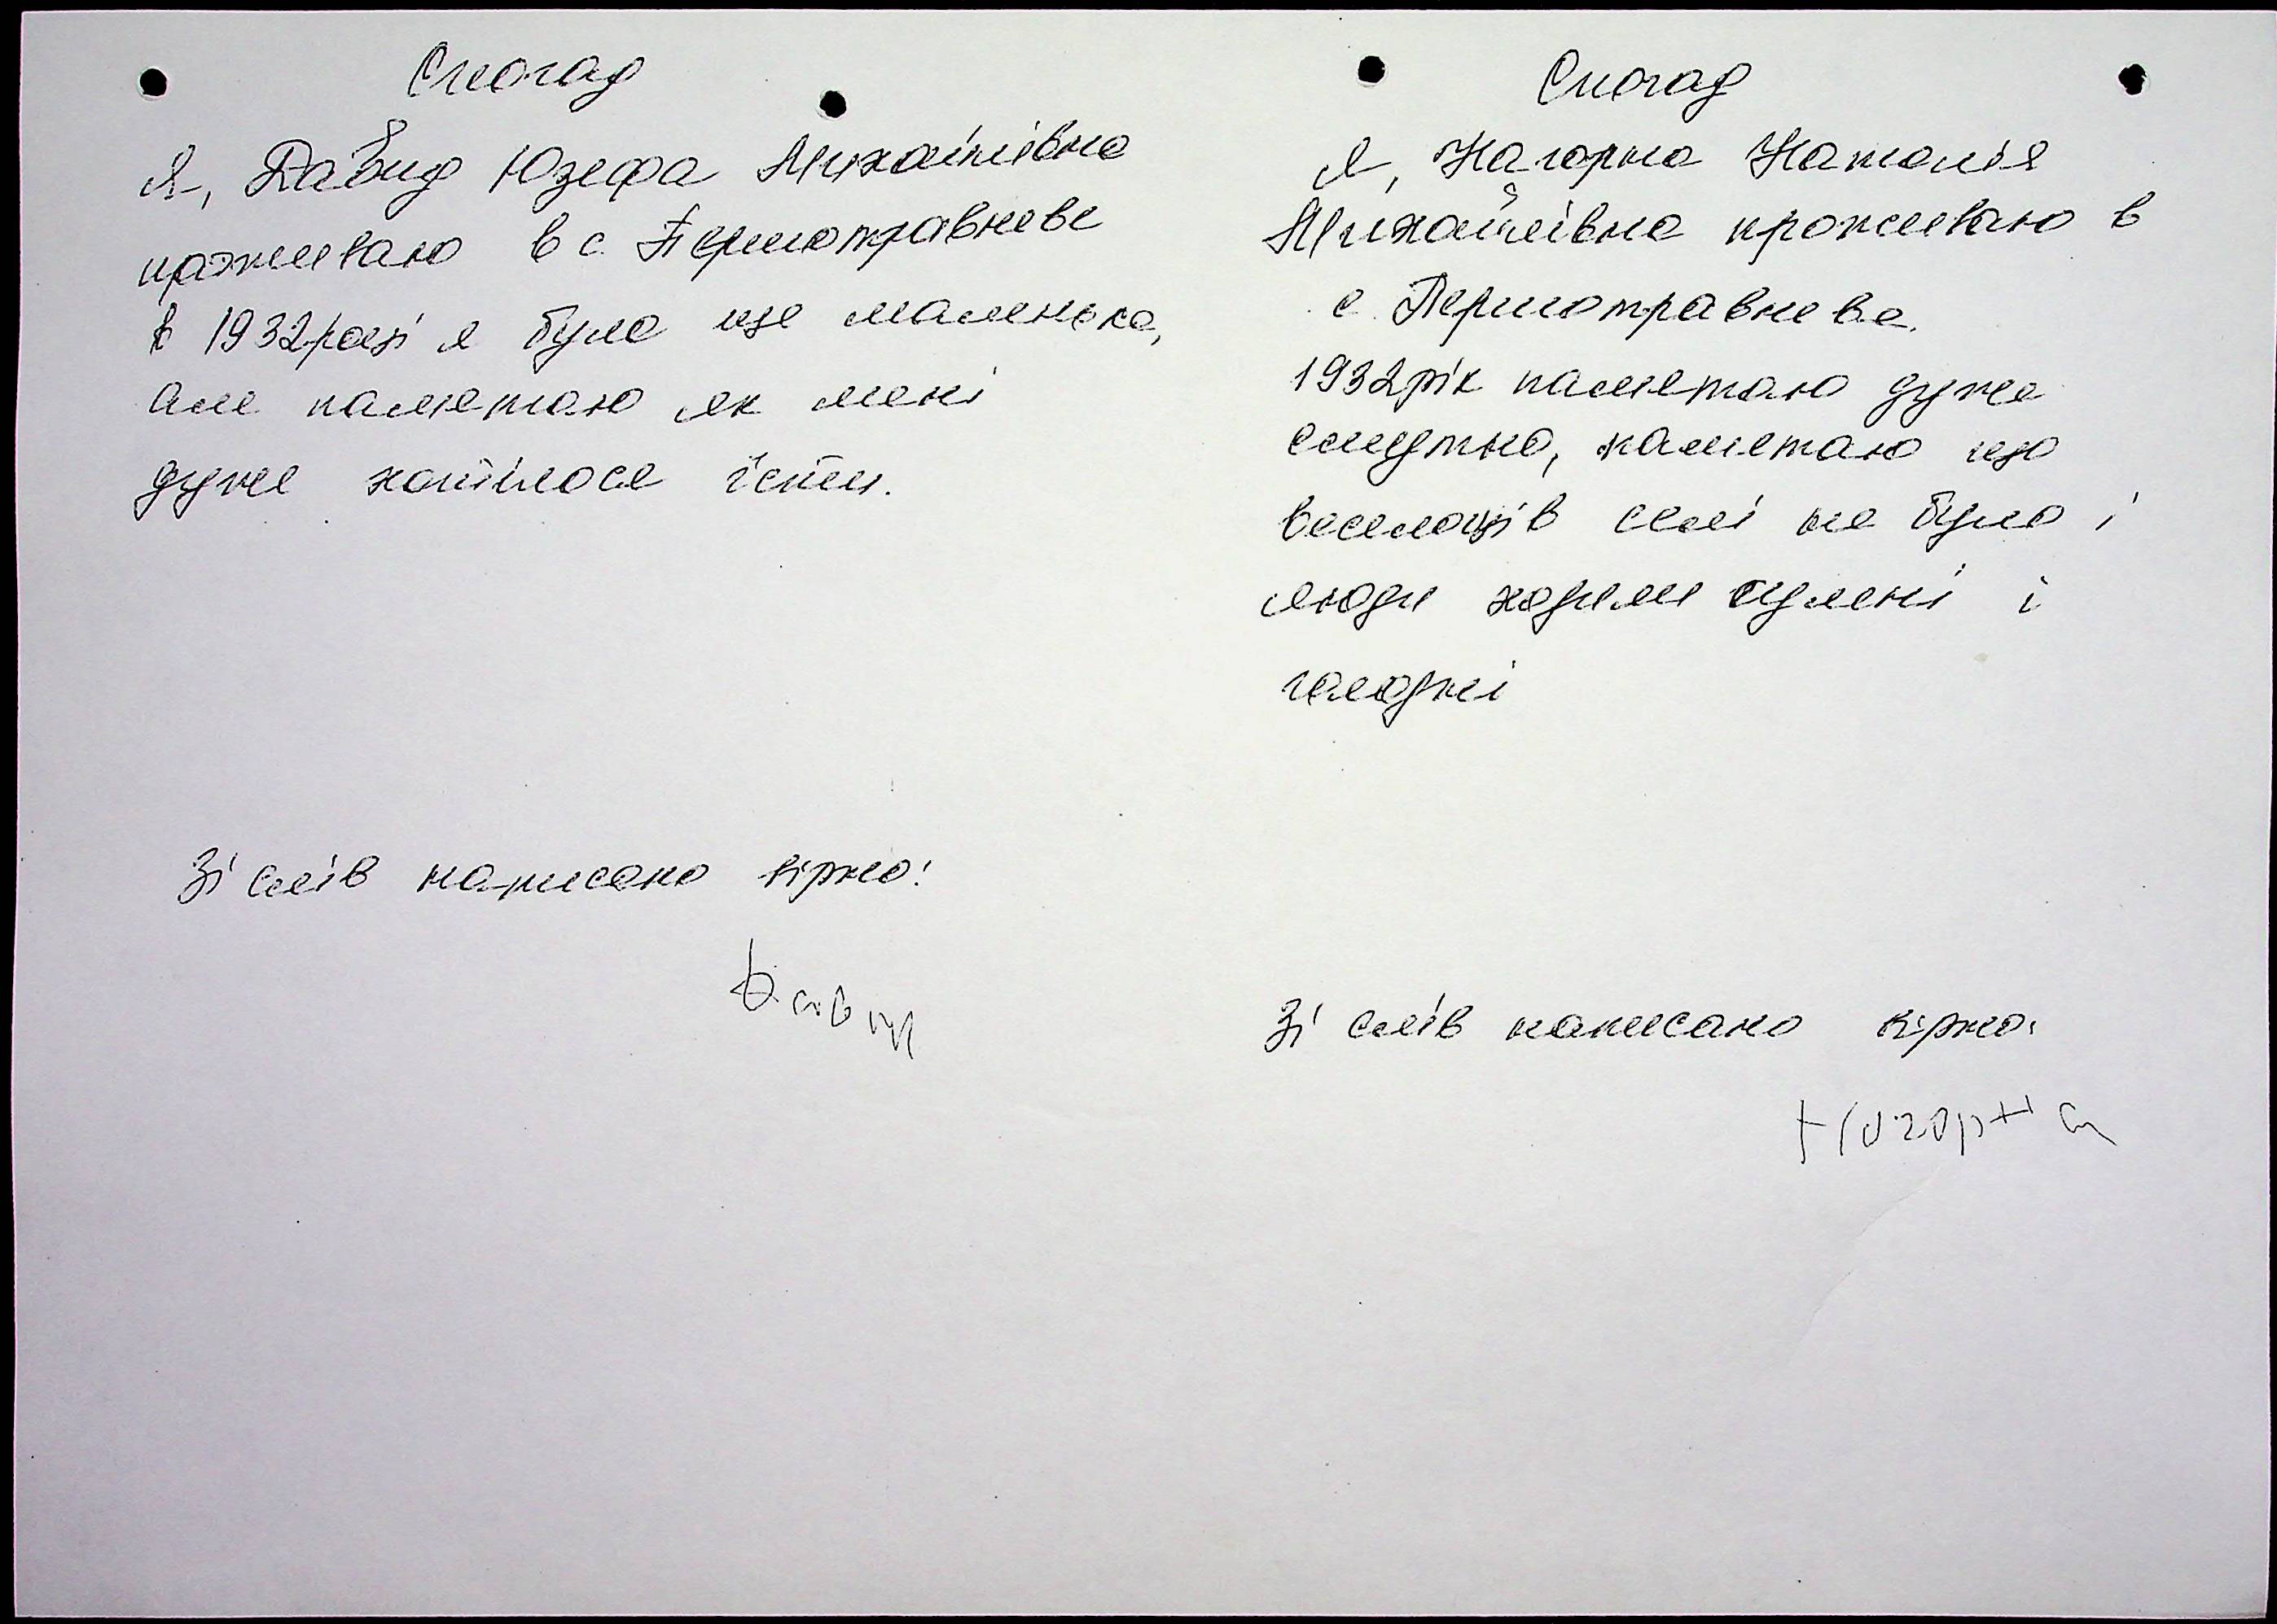 Спогад
Я, Давид Юзефа Михайлівна
проживаю в с. Першотравневе
в 1932році я була ще маленька,
але памятаю як мені
дуже хотілося їсти.
Зі слів написано вірно:
Давид
Спогад
Я, Нагорна Наталія
Михайлівна проживаю в
с. Першотравневе.
1932рік памятаю дуже
смутно, памятаю що
веселощів селі не було і
люди ходили сумні і
голодні
Зі слів написано вірно:
Нагорна